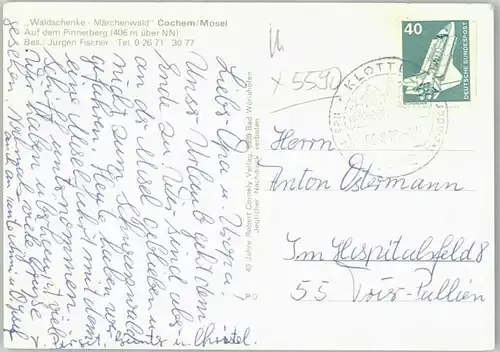 „Waldschenke - Märchenwald" Cochem/Mosel
Auf dem Pinnerberg (406 m über NN)
Bes.: Jürgen Fischer Tel. 0 26 71 30 77
Liebe Oma u. Uropa!
Unser Urlaub geht dem
Ende zu. Wir sind aber
an der Mosel geblieben u.
nicht zum Schwarzwald
gefahren. Heute haben wir
eine Moselfahrt mit dem
Schiff unternommen.
Wir haben überhaupt viel
gesehen. Nochmals viele Grüße
u. Christel
40 Jahre Robert Cornely Verlag 8939 Bad Wörishofen
Jeglicher Nachdruck verboten
x 5590
KLOTTEN
40
DEUTSCHE BUNDESPOST
Herrn
Anton Ostermann
Im Hospitalsfeld 8
55 Trier-Pallien